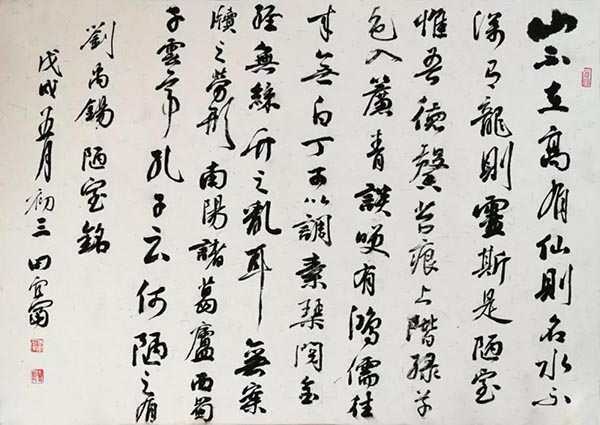 山不在高有仙則名水不
深有龍則靈斯是陋室
惟吾德馨苔痕上階綠草
色入簾青談笑有鴻儒往
来無白丁可以調素琴閱金
經無絲竹之亂耳無案
牘之勞形南陽諸葛廬西蜀
子雲亭孔子云何陋之有
劉禹錫陋室銘
戊戌五月初三田